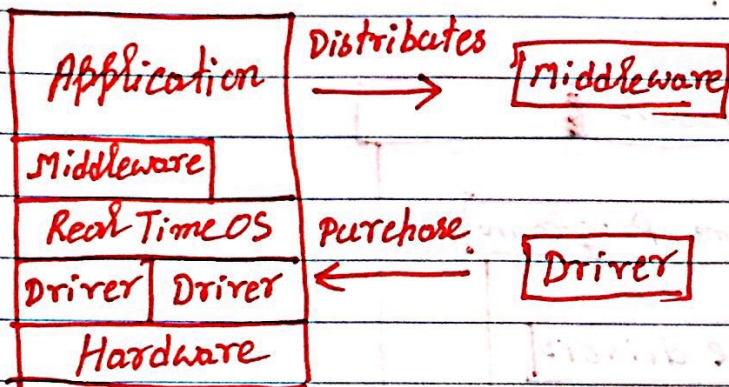 Application
Distributes
Middleware
Middleware
Real Time OS
Purchase
Driver Driver
Driver
Hardware